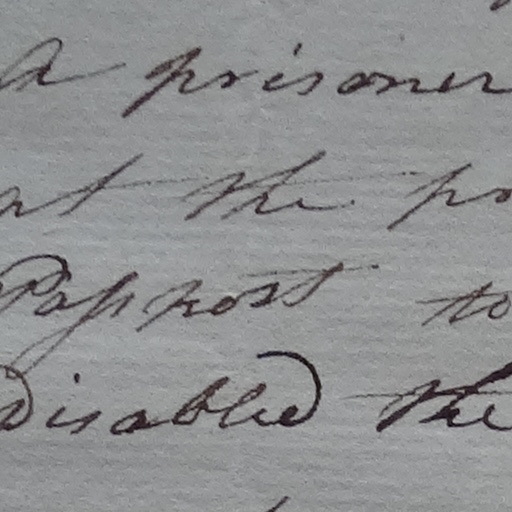 A prisoner
at the pr
Passport to
disabled the